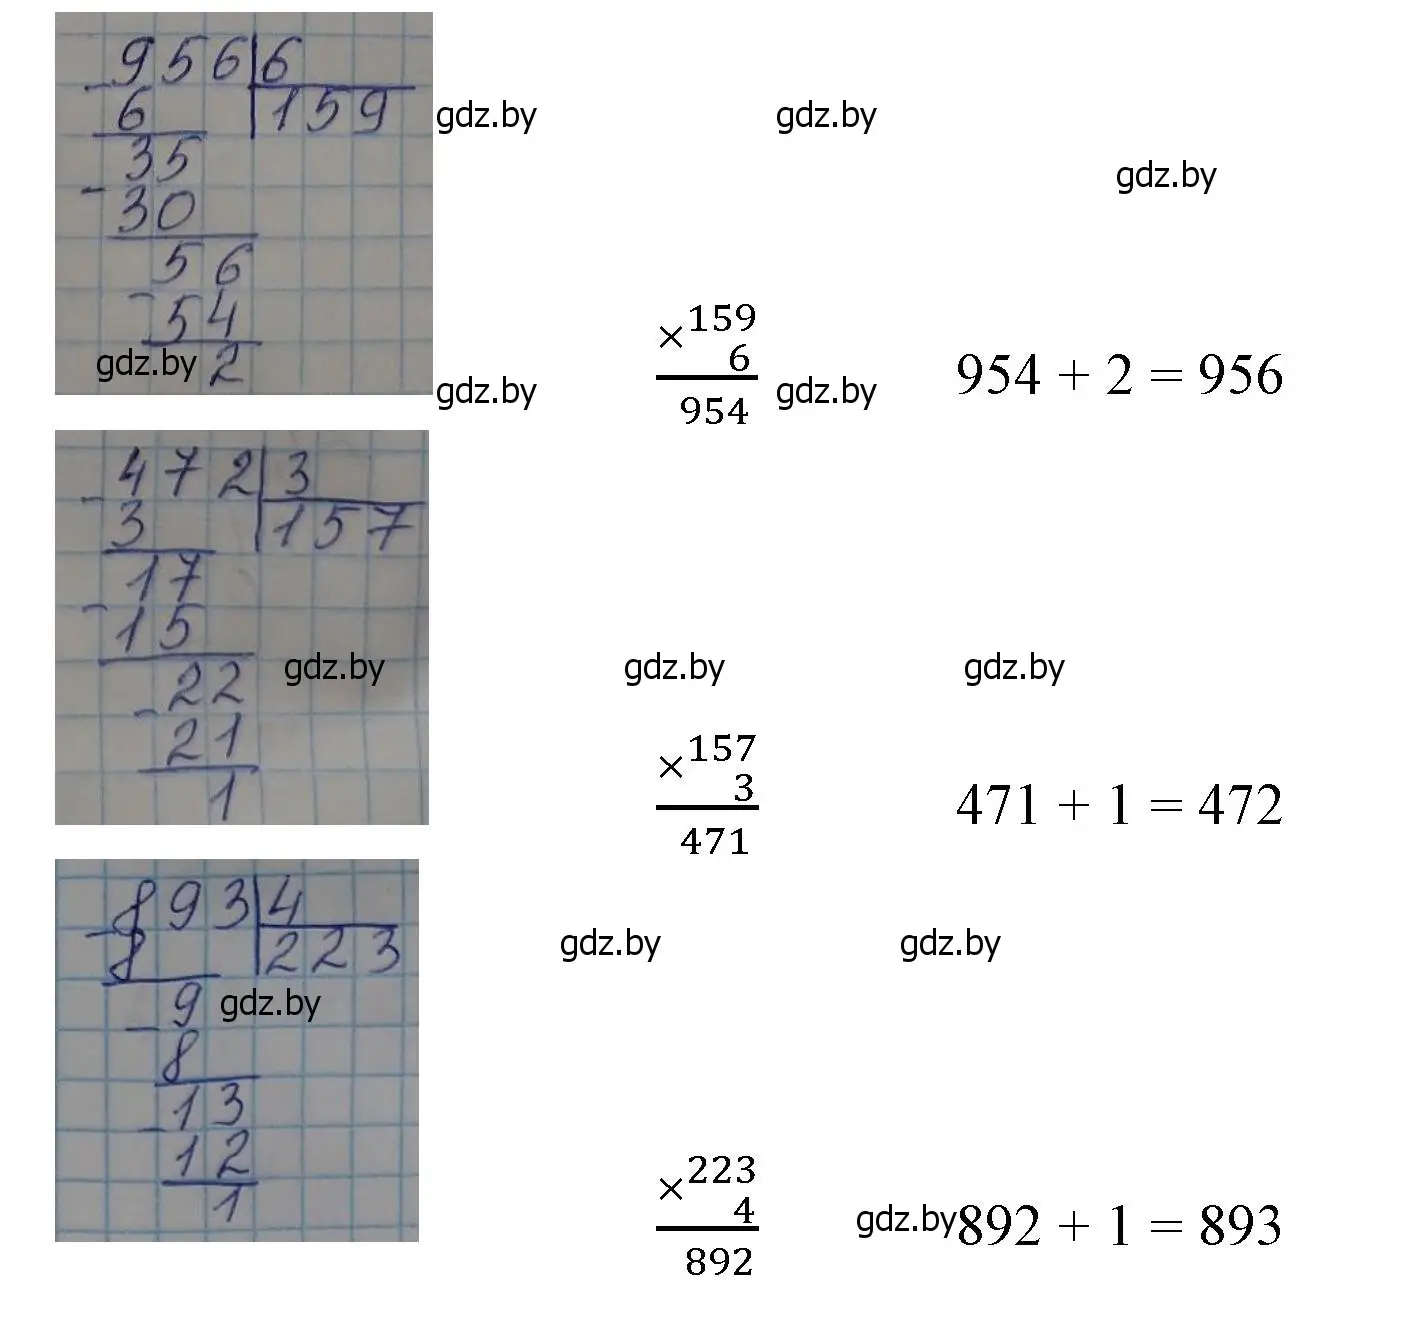 956 6
- 6 159
35
- 30
56
- 54
2
gdz.by
gdz.by
gdz.by
gdz.by
gdz.by
gdz.by
× 159
6
954
954 + 2 = 956
472 3
- 3 157
17
- 15
22
- 21
1
gdz.by
gdz.by
gdz.by
× 157
3
471
471 + 1 = 472
893 4
- 8 223
9
- 8
13
- 12
1
gdz.by
gdz.by
gdz.by
× 223
4
892
gdz.by
892 + 1 = 893